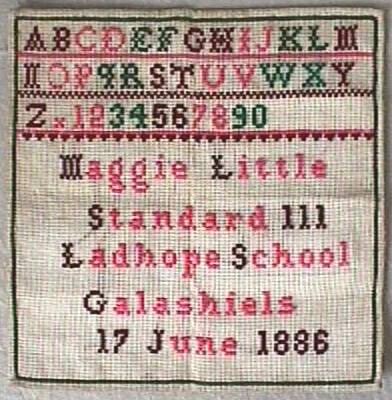 ABCDEFGHIJKLM
NOPQRSTUVWXY
Z x 1234567890
Maggie Little
Standard 111
Ladhope School
Galashiels
17 June 1886